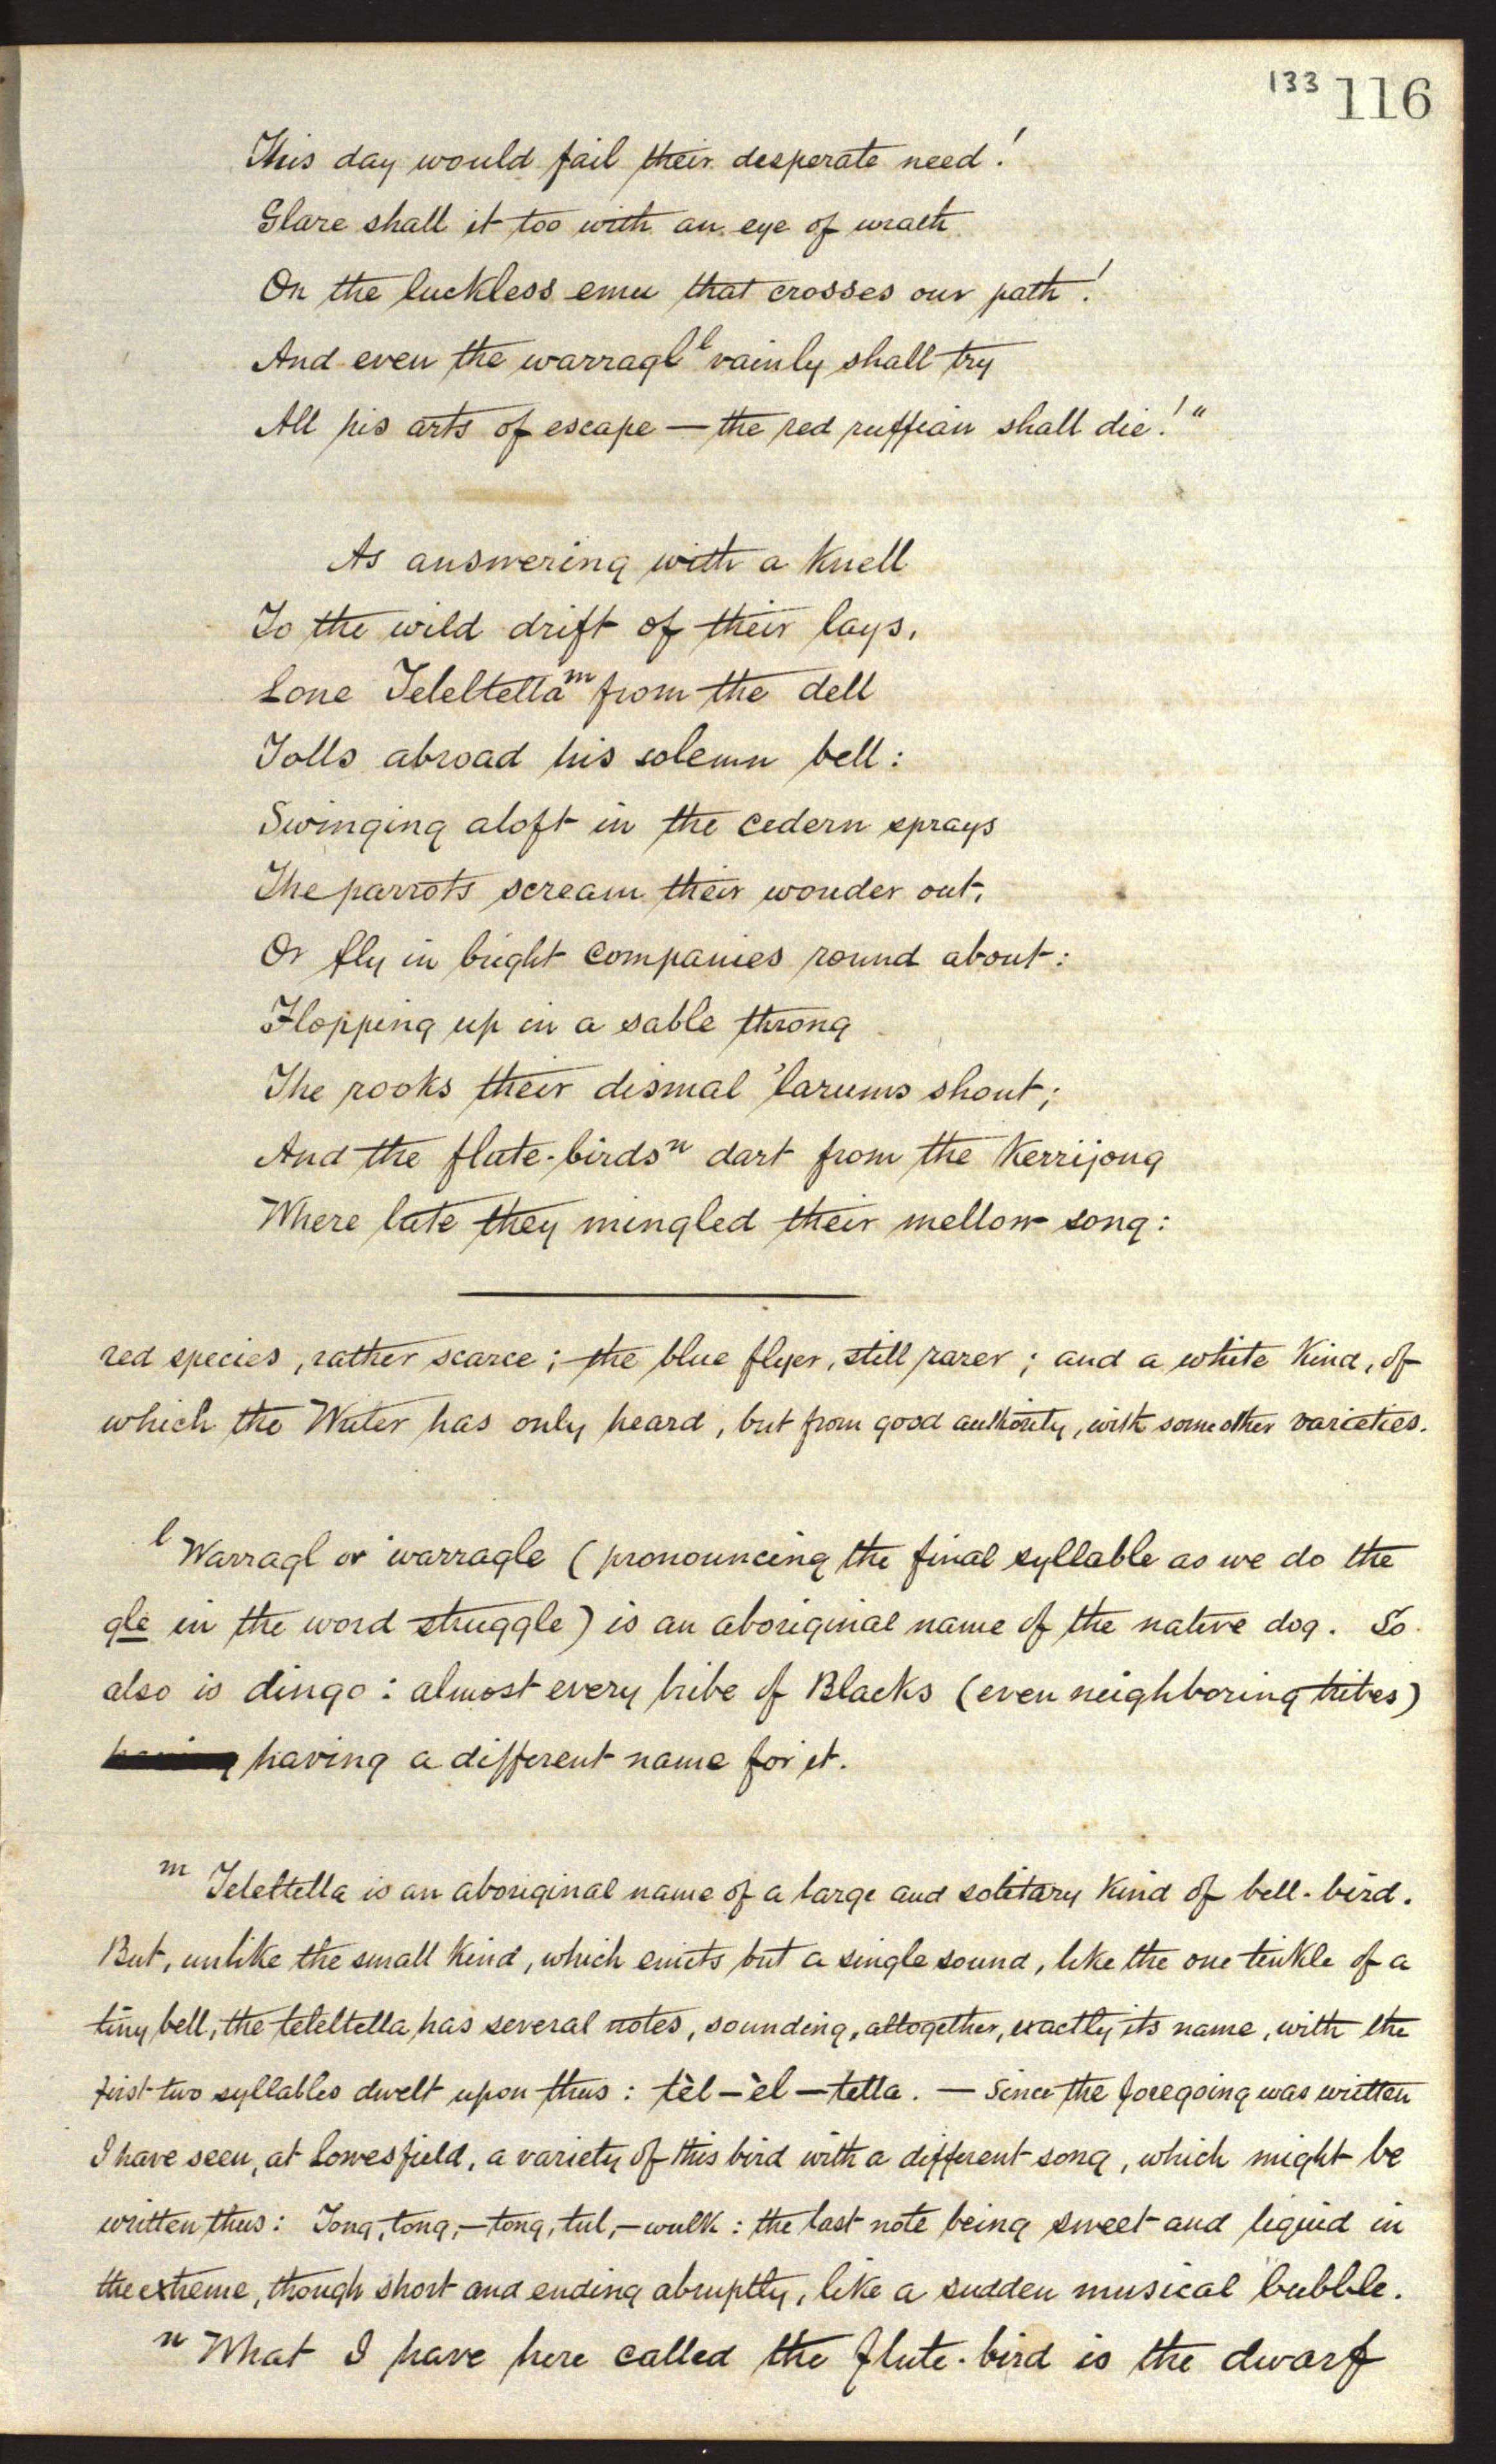 133 116
This day would fail their desperate need!
Glare shall it too with an eye of wrath
On the luckless emu that crosses our path!
And even the warragl<sup>l</sup> vainly shall try
All his arts of escape — the red ruffian shall die!"
As answering with a knell
To the wild drift of their lays,
Lone Teleltella<sup>m</sup> from the dell
Tolls abroad his solemn bell:
Swinging aloft in the cedern sprays
The parrots scream their wonder out,
Or fly in bright companies round about:
Flopping up in a sable throng
The rooks their dismal 'larums shout;
And the flute-birds<sup>n</sup> dart from the Kerrijong
Where late they mingled their mellow song:
red species, rather scarce; the blue flyer, still rarer; and a white kind, of
which the Writer has only heard, but from good authority, with some other varieties.
l Warragl or warragle (pronouncing the final syllable as we do the
gle in the word struggle) is an aboriginal name of the native dog. So
also is dingo: almost every tribe of Blacks (even neighboring tribes)
having a different name for it.
m Teleltella is an aboriginal name of a large and solitary kind of bell-bird.
But, unlike the small kind, which emits but a single sound, like the one tinkle of a
tiny bell, the teleltella has several notes, sounding, altogether, exactly its name, with the
first two syllables dwelt upon thus: tèl — èl — tella. — Since the foregoing was written
I have seen, at Lowesfield, a variety of this bird with a different song, which might be
written thus: Tong, tong, — tong, tul, — wulk: the last note being sweet and liquid in
the extreme, though short and ending abruptly, like a sudden musical bubble.
n What I have here called the flute-bird is the dwarf